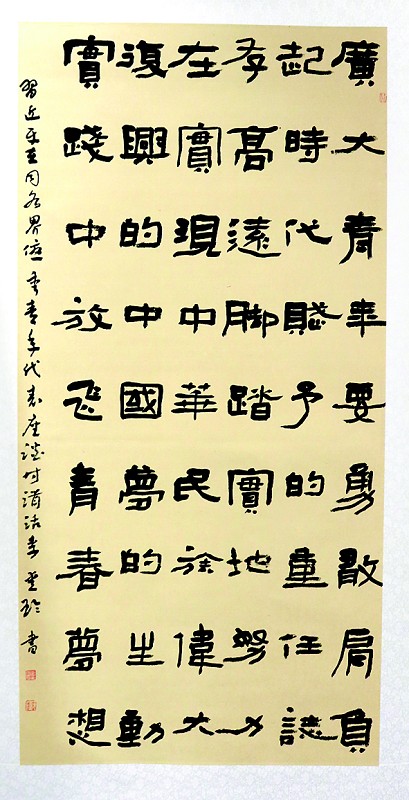 廣大青年要勇敢肩負
起時代賦予的重任誌
存高遠脚踏實地努力
在實現中華民族偉大
復興的中國夢的生動
實踐中放飛青春夢想
習近平在同各界優秀青年代表座談時講話 書